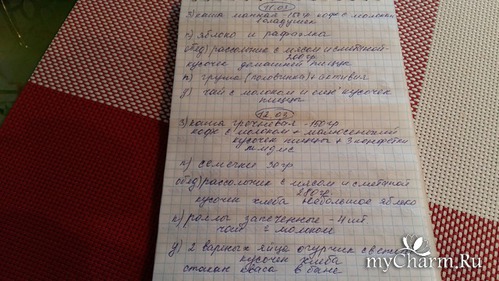 11.03
З) каша манная - 150гр кофе с молоком
1 оладушек
п) яблоко и рафаэлка
обед) рассольник с мясом и сметаной
200гр
кусочек домашней пиццы
п) груша (половинка) + активия
у) чай с молоком и кусочек
пиццы
12.03
З) каша гречневая - 150гр
кофе с молоком + малюсенький
кусочек пиццы + 3 конфетки
п) семечки 30гр
обед) рассольник с мясом и сметаной
280гр
кусочек хлеба небольшое яблоко
п) роллы запеченные - 4шт
чай с молоком
у) 2 вареных яйца огурчик свежий
кусочек хлеба
стакан кваса в бане
myCharm.Ru